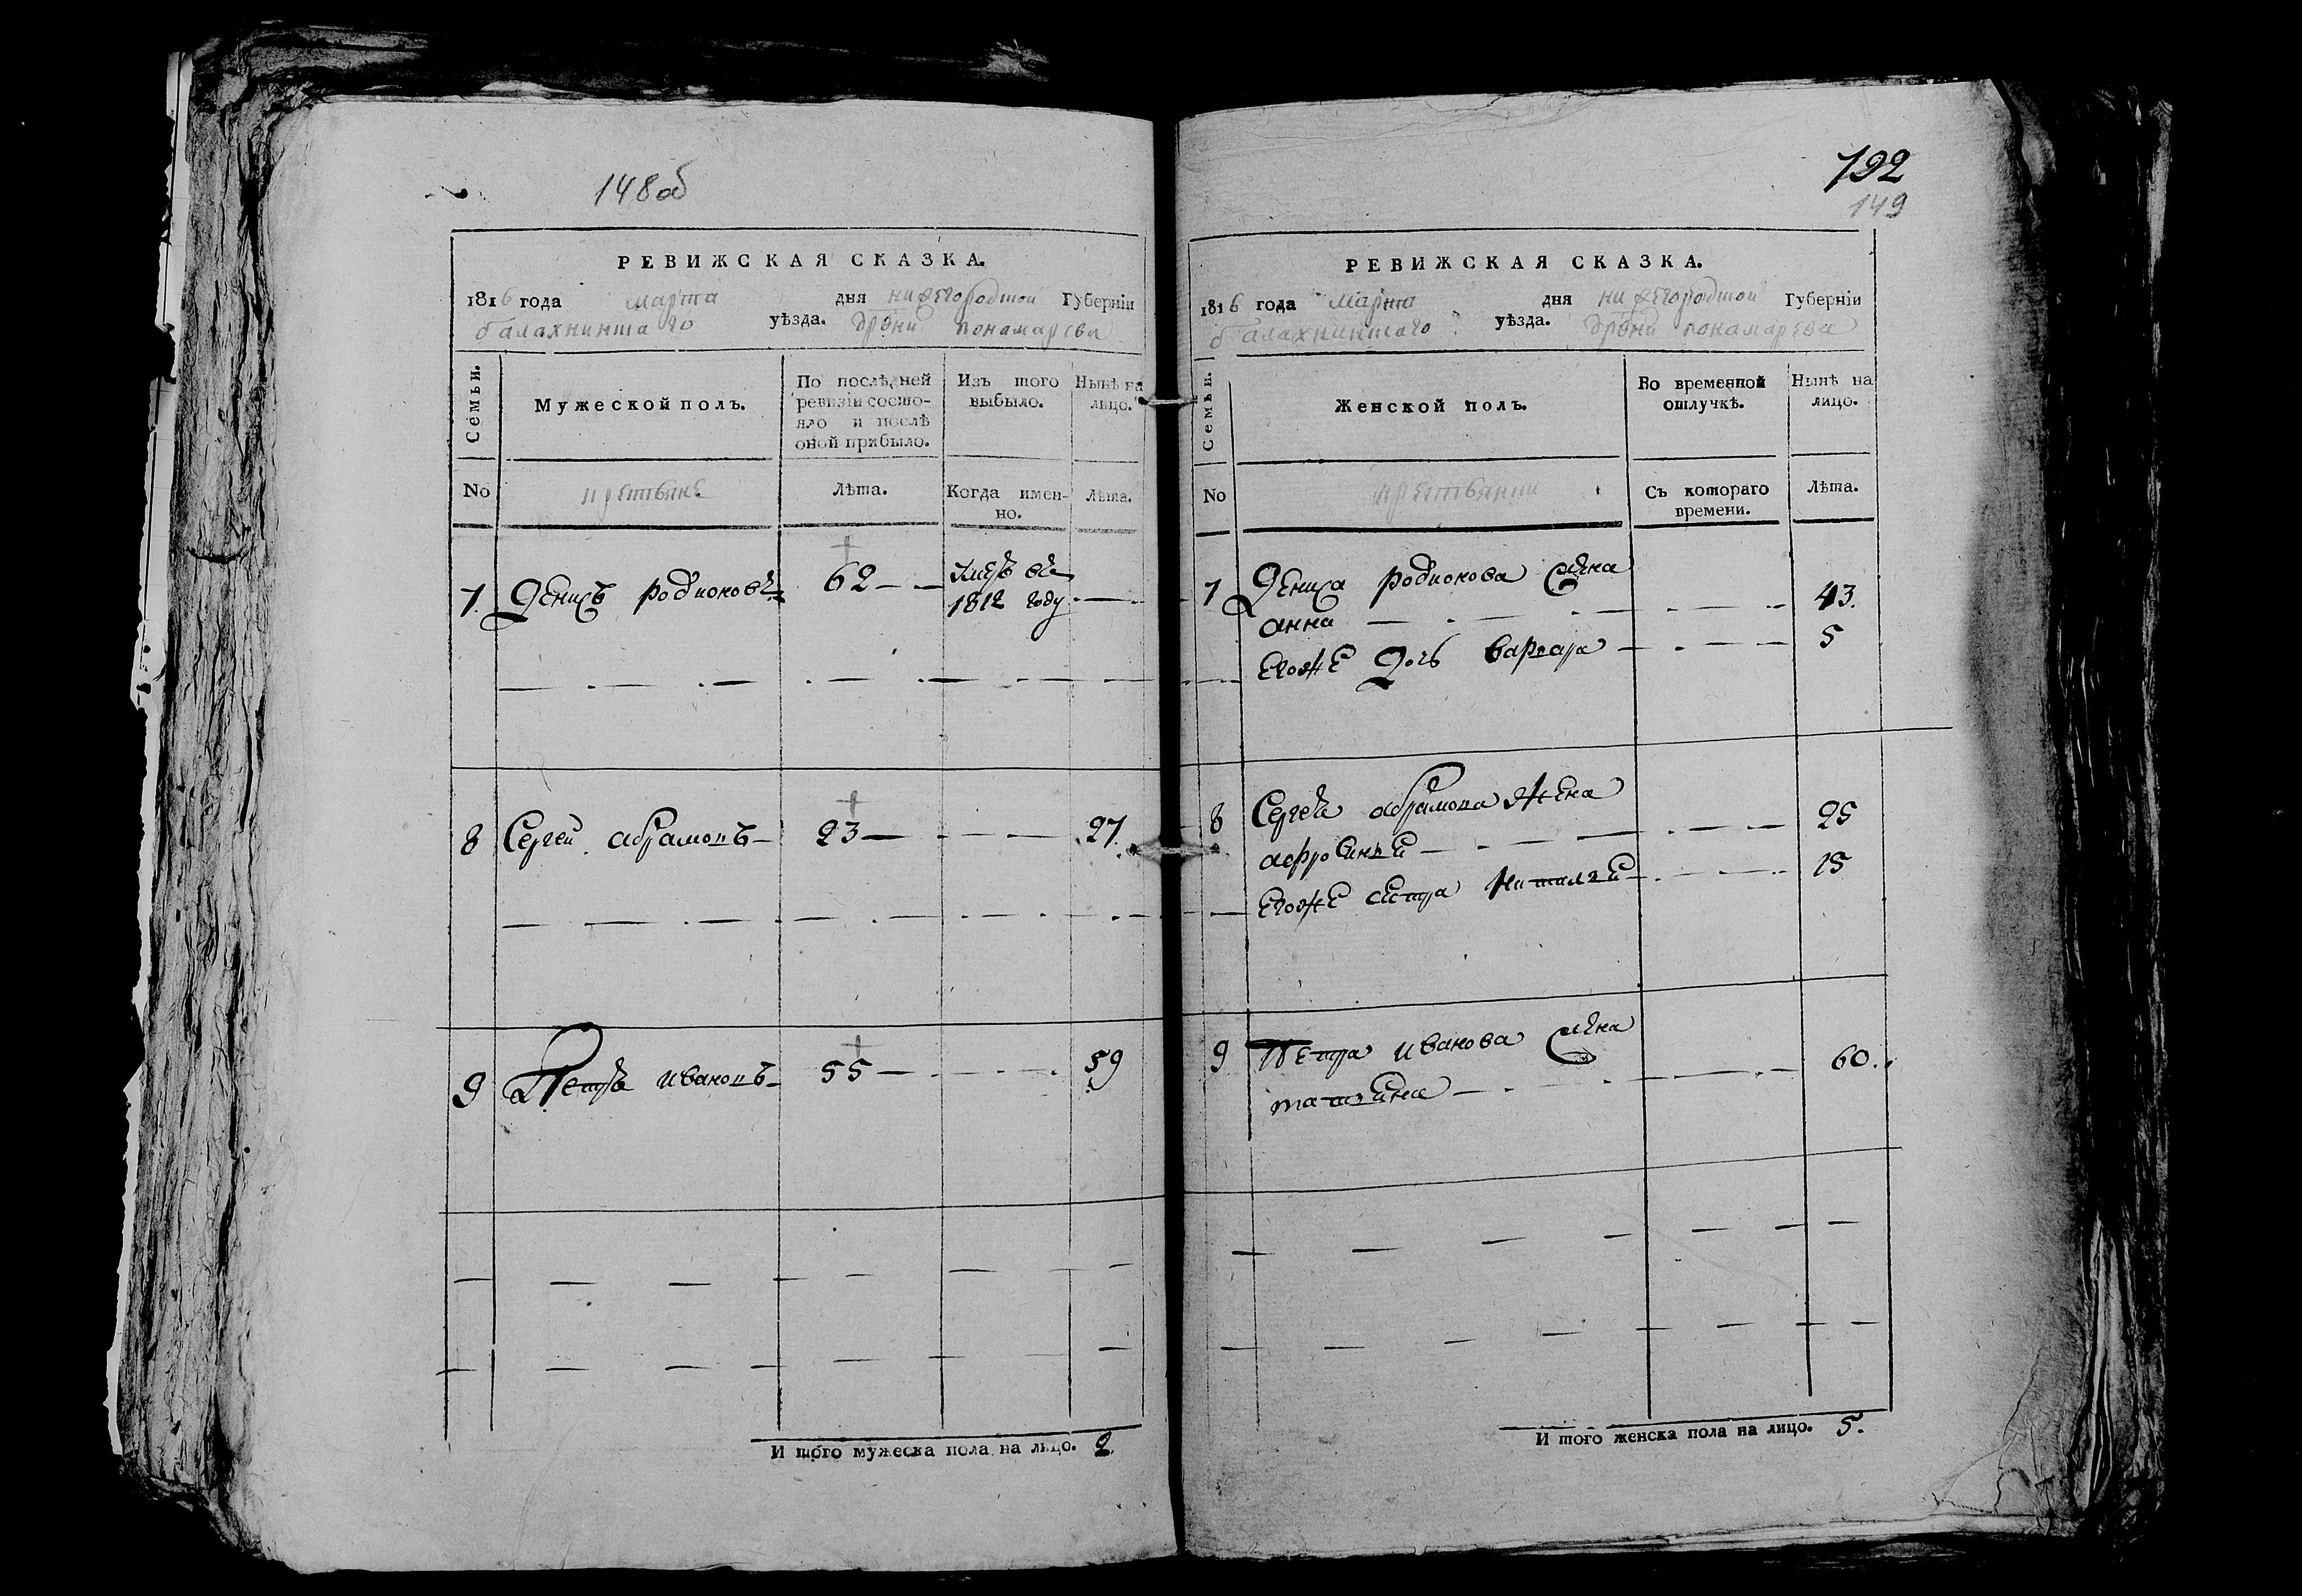 148об
РЕВИЖСКАЯ СКАЗКА.
1816 года марта дня нижегородской Губерніи
балахнинскаго уѣзда. дрвни понамарева
Семьи.
Мужеской полъ.
По послѣдней ревизіи состо-
яло и послѣ
оной прибыло.
Изъ того
выбыло.
Нынѣ на
лицо.
No
крестьяне
Лѣта.
Когда имен-
но.
Лѣта.
7. Денисъ родионовъ 62
1812 году
8 Сергей абрамовъ 23 27.
9 Петръ ивановъ 55 59
И того мужеска пола на лицо. 2.
192
149
РЕВИЖСКАЯ СКАЗКА.
1816 года марта дня нижегородской Губерніи
балахнинскаго уѣзда. дрвни понамарева
Семьи.
Женской полъ.
Во временной
отлучкѣ.
Нынѣ на
лицо.
No
Съ котораго
времени.
Лѣта.
7 Дениса родионова жена
анна 43.
егоже дочь варвара 5
8 Сергея абрамова жена
афросинья 25
егоже сестра наталья 15
9 Петра иванова жена
татьяна 60.
И того женска пола на лицо. 5.